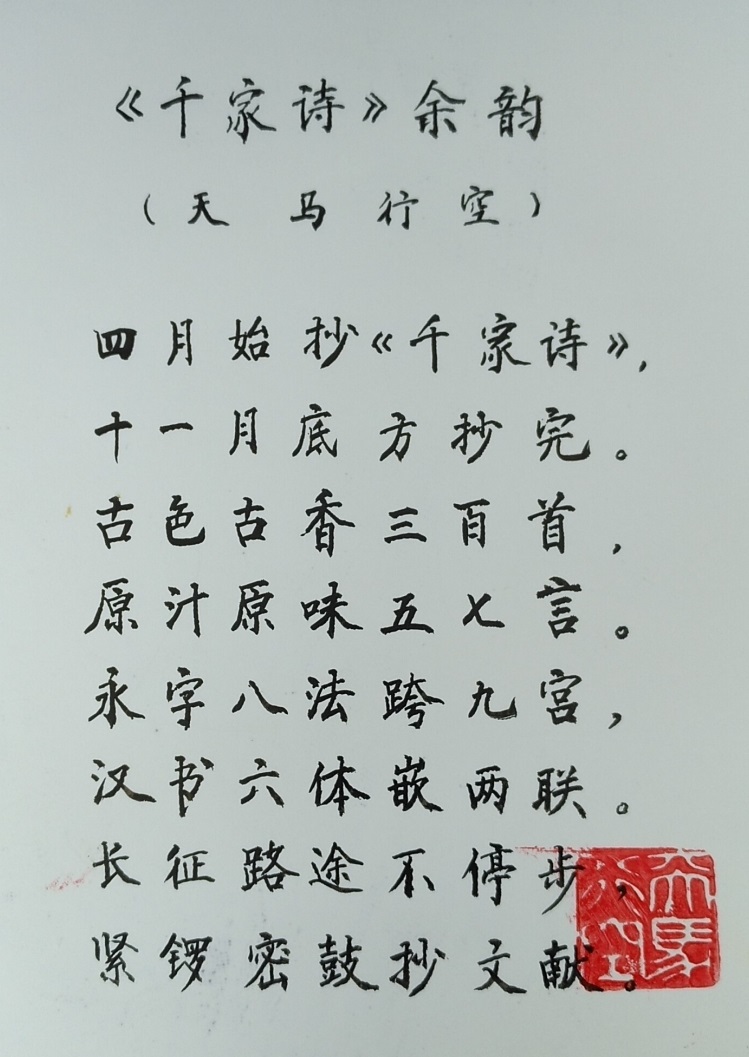 《千家诗》余韵
（天马行空）
四月始抄《千家诗》，
十一月底方抄完。
古色古香三百首，
原汁原味五七言。
永字八法跨九宫，
汉书六体嵌两联。
长征路途不停步，
紧锣密鼓抄文献。
天马行空